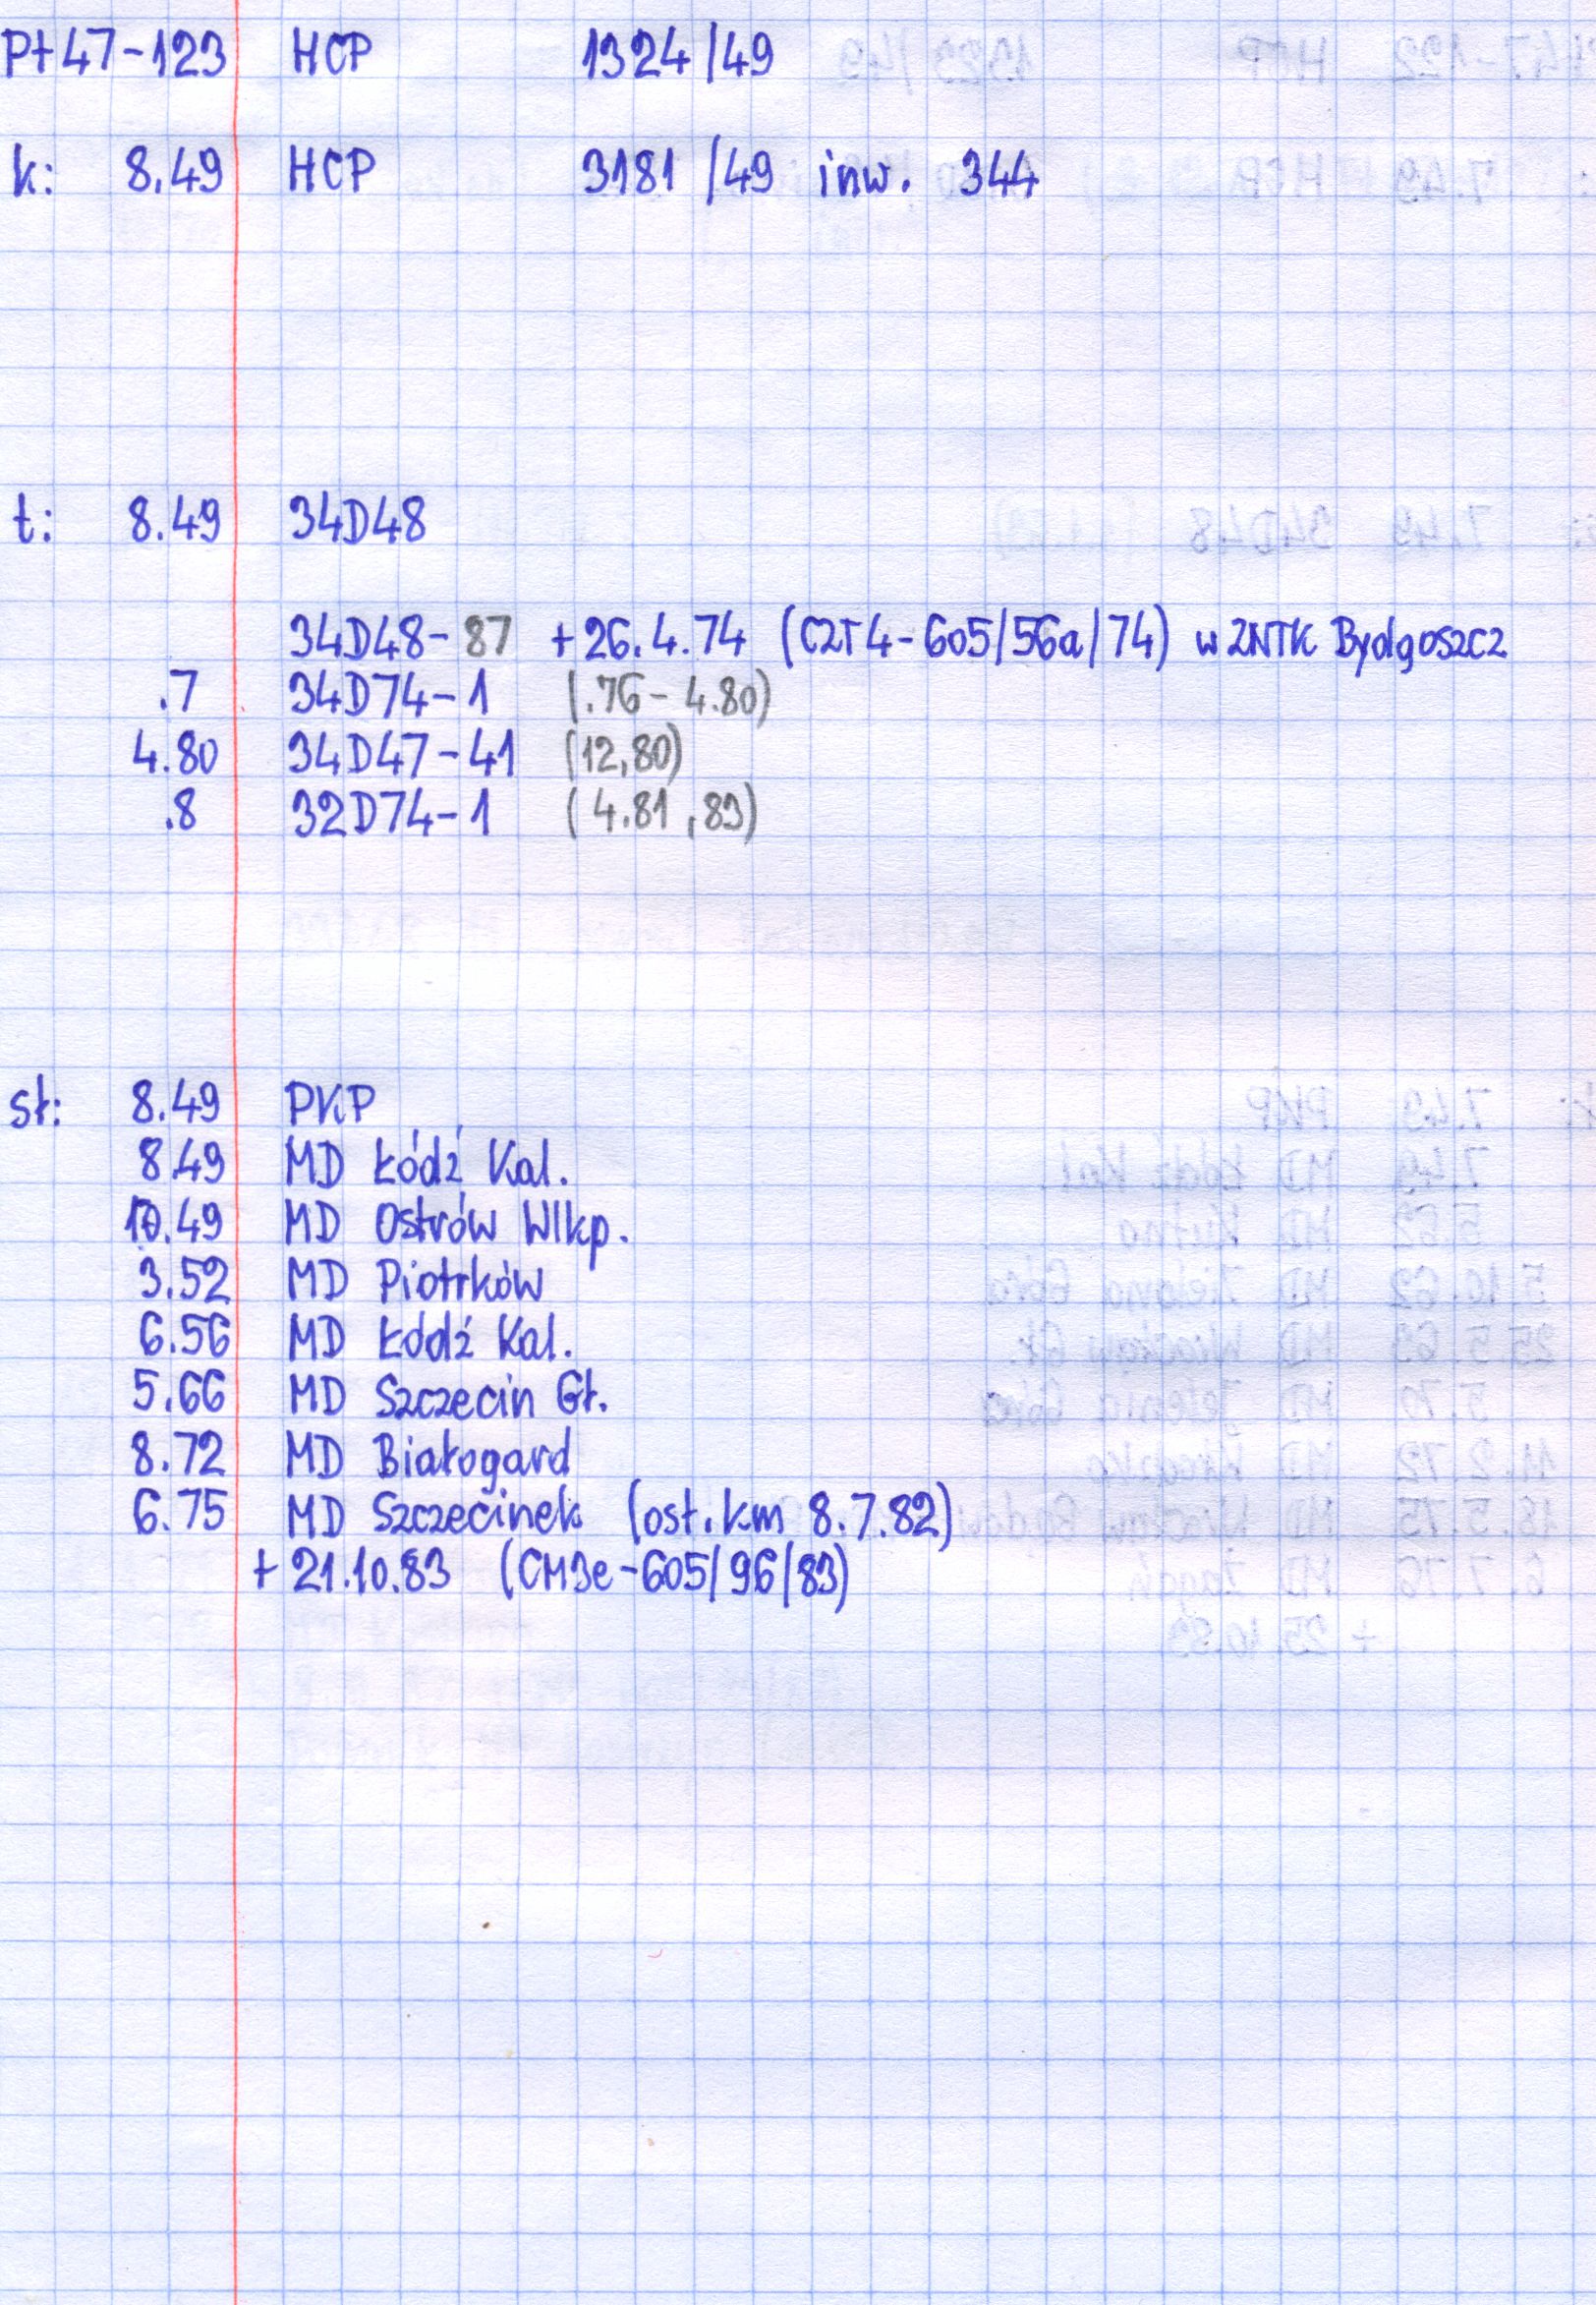 Pt47-123 HCP 1324/49
k: 8.49 HCP 3181/49 inw. 344
t: 8.49 34D48
34D48-87 +26.4.74 (CZT4-605/56a/74) w ZNTK Bydgoszcz
.7 34D74-1 (.76-4.80)
4.80 34D47-41 (12,80)
.8 32D74-1 (4.81,83)
sł: 8.49 PKP
8.49 MD Łódź Kal.
10.49 MD Ostrów Wlkp.
3.52 MD Piotrków
6.56 MD Łódź Kal.
5.66 MD Szczecin Gł.
8.72 MD Białogard
6.75 MD Szczecinek (ost.km 8.7.82)
+ 21.10.83 (CM3e-605/96/83)